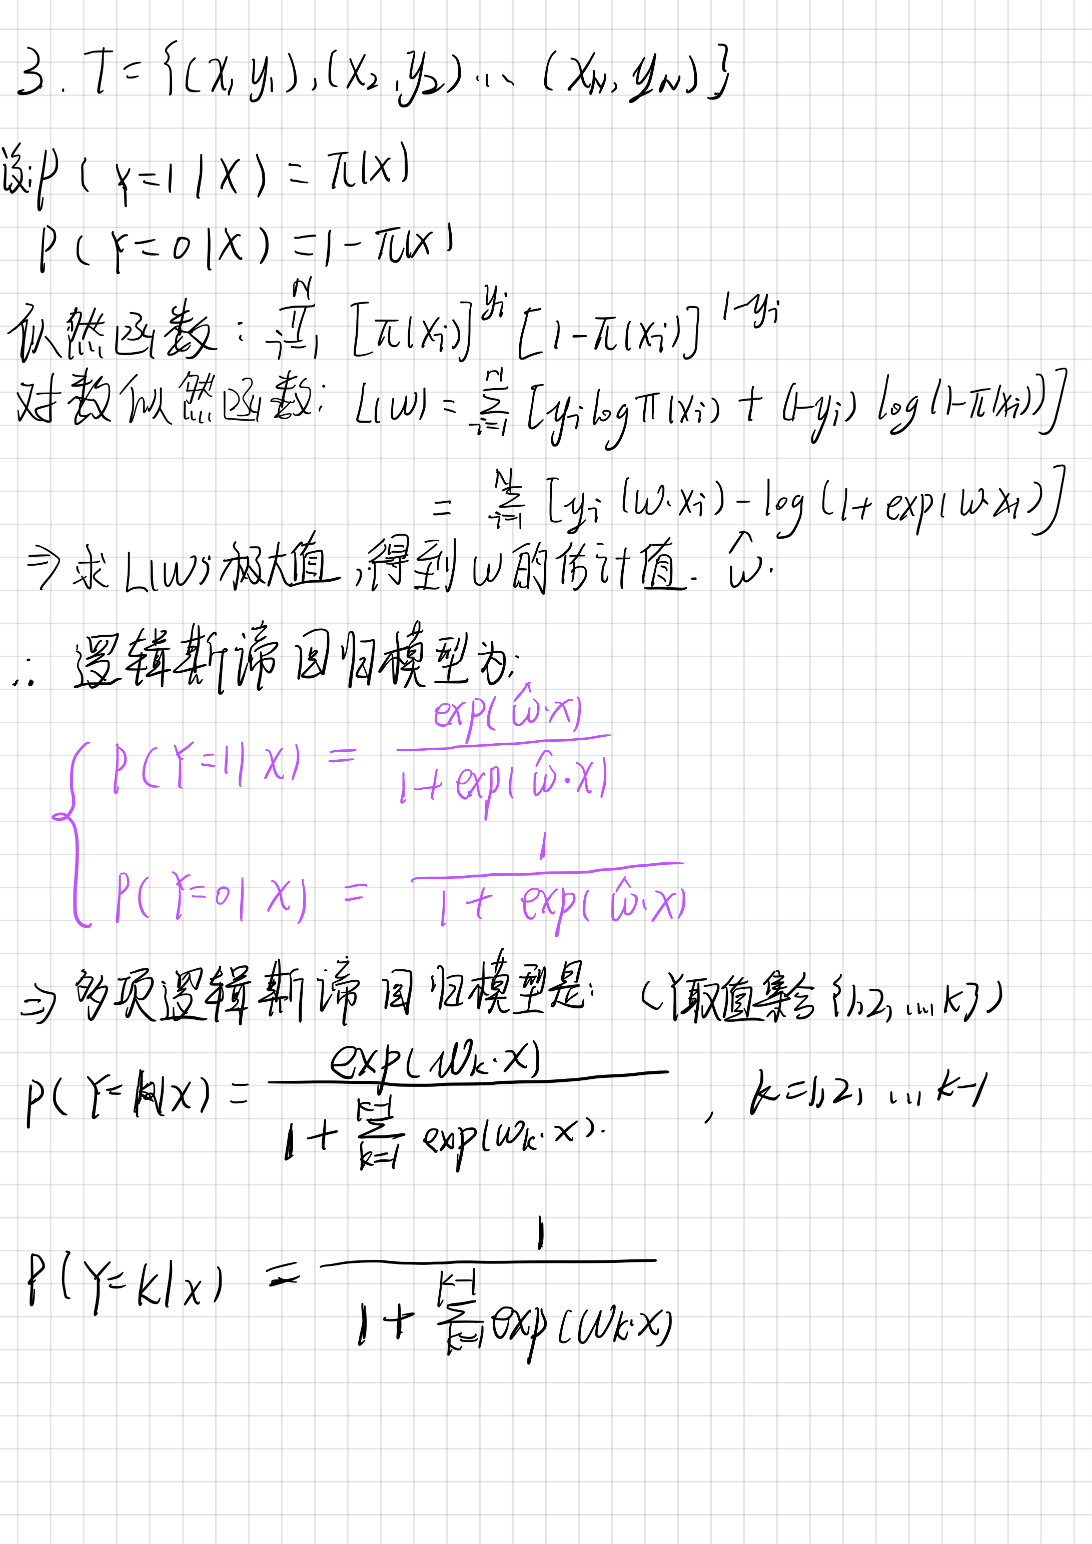 3. T = {(x₁, y₁), (x₂, y₂) ... (x_N, y_N)}
设: P(Y=1|X) = π(x)
P(Y=0|X) = 1-π(x)
似然函数: ∏_{i=1}^{N} [π(x_i)]^{y_i} [1-π(x_i)]^{1-y_i}
对数似然函数: L(w) = ∑_{i=1}^{N} [y_i log π(x_i) + (1-y_i) log(1-π(x_i))]
= ∑_{i=1}^{N} [y_i (w·x_i) - log(1+exp(w·x_i)]
⇒ 求L(w)极大值,得到w的估计值. ŵ.
∴ 逻辑斯谛回归模型为:
P(Y=1|X) = exp(ŵ·x) / 1+exp(ŵ·x)
P(Y=0|X) = 1 / 1+exp(ŵ·x)
⇒ 多项逻辑斯谛回归模型是: (Y取值集合{1,2,...K})
P(Y=k|x) = exp(w_k·x) / 1+∑_{k=1}^{K-1} exp(w_k·x). , k=1,2,...K-1
P(Y=K|x) = 1 / 1+∑_{k=1}^{K-1} exp(w_k·x)